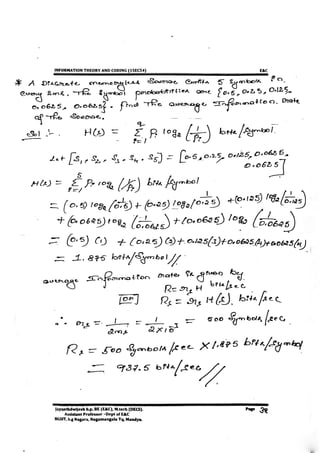 INFORMATION THEORY AND CODING (15EC54) E&C
* A Discrete memoryless source emits 5 symbols in
every 2ms. The symbol probabilities are {0.5, 0.25, 0.125,
0.0625, 0.0625}. find the average Information Rate
of the source.
Sol :- H(s) = Σ Pi log2 (1/Pi) bits/symbol.
Let [S1, S2, S3, S4, S5] = [0.5, 0.25, 0.125, 0.0625,
0.0625]
H(s) = Σ Pi log2 (1/Pi) bits/symbol
= (0.5) log2 (1/0.5) + (0.25) log2 (1/0.25) + (0.125) log2 (1/0.125)
+ (0.0625) log2 (1/0.0625) + (0.0625) log2 (1/0.0625)
= (0.5) (1) + (0.25)(2) + 0.125(3) + 0.0625(4) + 0.0625(4)
= 1.875 bits/symbol //
average Information rate is given by
R = rs H bits/sec
[OR] Rs = rs H(s). bits/sec
∴ rs = 1/2ms = 1/2×10-3 = 500 symbols/sec.
Rs = 500 symbols/sec × 1.875 bits/symbol
= 937.5 bits/sec //
Jayanthdwijesh h.p. BE (E&C), M.tech (DECS). Page 34
Assistant Professor –Dept of E&C
BGSIT, b g Nagara, Nagamangala Tq, Mandya.